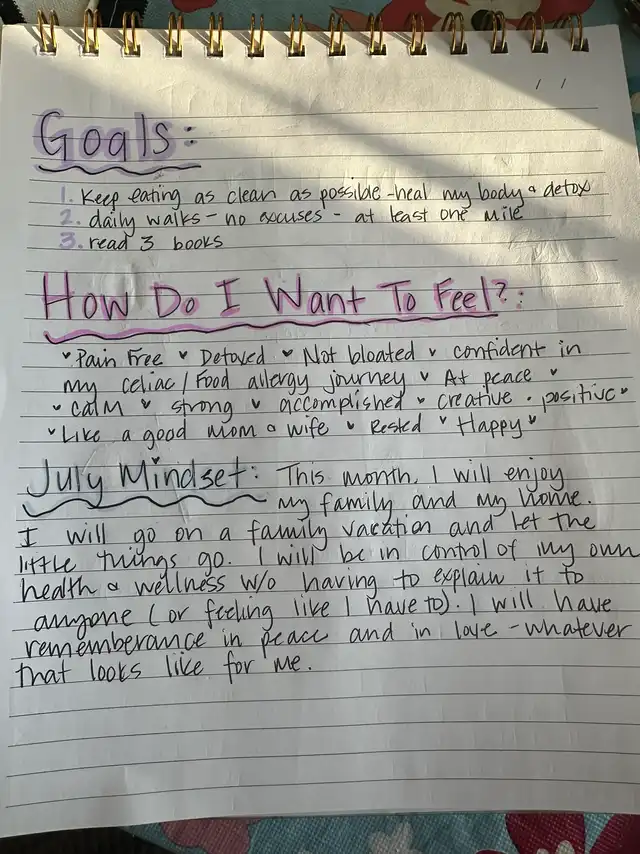 / /
Goals:
1. Keep eating as clean as possible - heal my body & detox
2. daily walks - no excuses - at least one mile
3. read 3 books
How Do I Want To Feel?:
♥ Pain Free ♥ Detoxed ♥ Not bloated ♥ confident in
my celiac / Food allergy journey ♥ At peace ♥
♥ calm ♥ strong ♥ accomplished ♥ creative • positive ♥
♥ Like a good mom & wife ♥ Rested ♥ Happy ♥
July Mindset: This month, I will enjoy
my family and my home.
I will go on a family vacation and let the
little things go. I will be in control of my own
health & wellness w/o having to explain it to
anyone (or feeling like I have to). I will have
rememberance in peace and in love - whatever
that looks like for me.